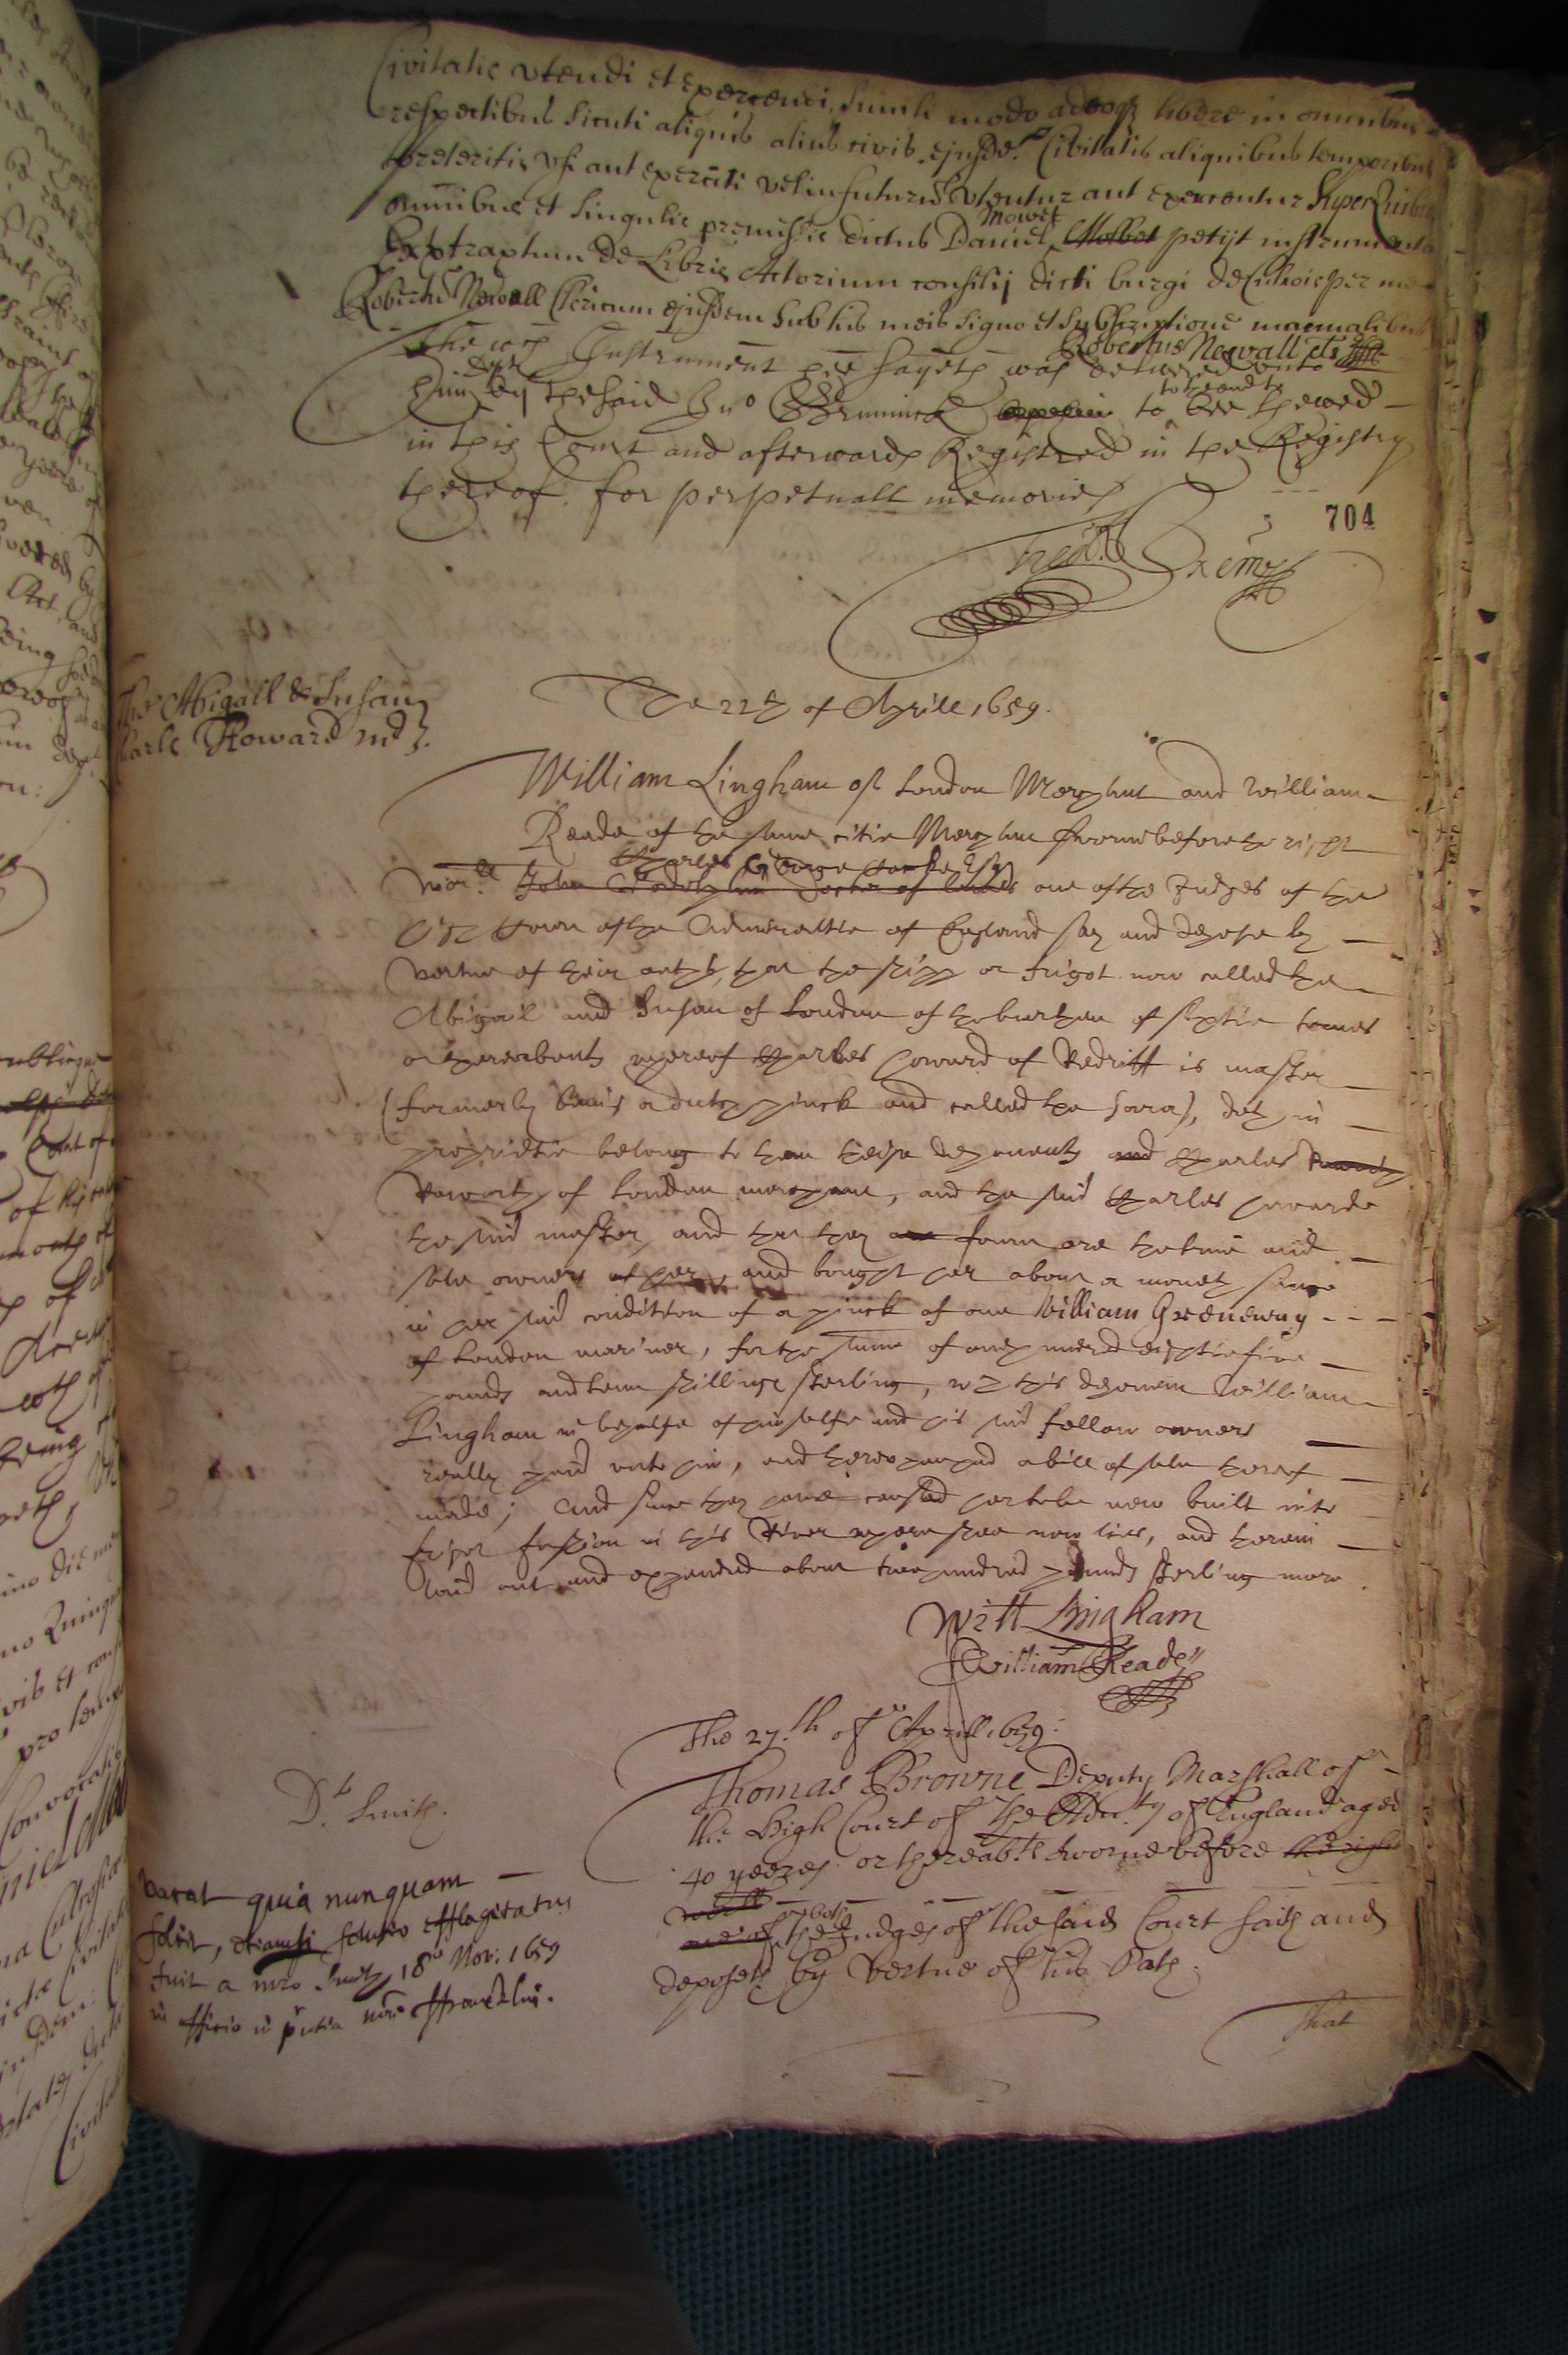 Civitatis utendi et exercendi, simili modo adeoq libere in omnibus
respectibus sicuti aliquis alius civis ejusde Civitatis aliquibus temporibus
preteritis usi aut exerciti vel in futuris utentur aut exercentur Super Quibus
omnibus et singulis premissis dictus Daniel Mowet petijt instrumenta
Extractum de Libris Actorium consilij dicti burgi de Culrois per me
Robertu Newall Clericum ejusdem sub his meis signo et subscriptione manualibus
Robertus Newall Cls
The wch Instrument hee sayeth was delivered unto
him by the said Jno to bee shewed
in this Court and afterwards Registred in the Registry
thereof for perpetuall memorie
704
The Abigall & Susan
Charls Howard mr
The 22th of Aprill 1659.
William Lingham of London Merchant and William
Reade of the same citie Merchant sworne before the right
worll John Godolphin Doctor of lawes one of the Judges of the
Charles George Cocke Esqr
high Court of the Admiraltie of England say and depose by
vertue of their oaths, that the shipp or frigot now called the
Abigail and Susan of London of the burthen of sixtie tonnes
or thereabouts whereof Charles Howard of Redriff is master
(formerly being a dutch pinck and called the Sara), doth in
proprietie belong to them theise deponents and Charles
Haworth of London merchant, and the said Charles Howarde
the said master, and that they foure are the true and
sole owners of her, and bought her about a moneth since
in her said condition of a pinck of one William Greeneway
of London mariner, for the summe of one hundred eightie five
pounds and tenn shillings sterling, wch this deponent William
Lingham in behalfe of himselfe and his said fellow owners
really paid unto him, and thereupon had a bill of sale thereof
made; And since they have caused her to be new built into
frigot fashion in this River where shee now lies, and therein
laid out and expended about two hundred pounds sterling more
Will Lingham
William Reade
The 27th of Aprill 1659:
Dr Smith.
Thomas Browne Deputy Marshall of
the High Court of the Admty of England aged
40 yeeres or thereabts sworne before the right
worll both
one of the Judges of the said Court saith and
deposeth by Vertue of his Oath.
Vacat quia nunquam
solvit, solutio efflagitatus
fuit a mro Smith 18o Nov: 1659
That